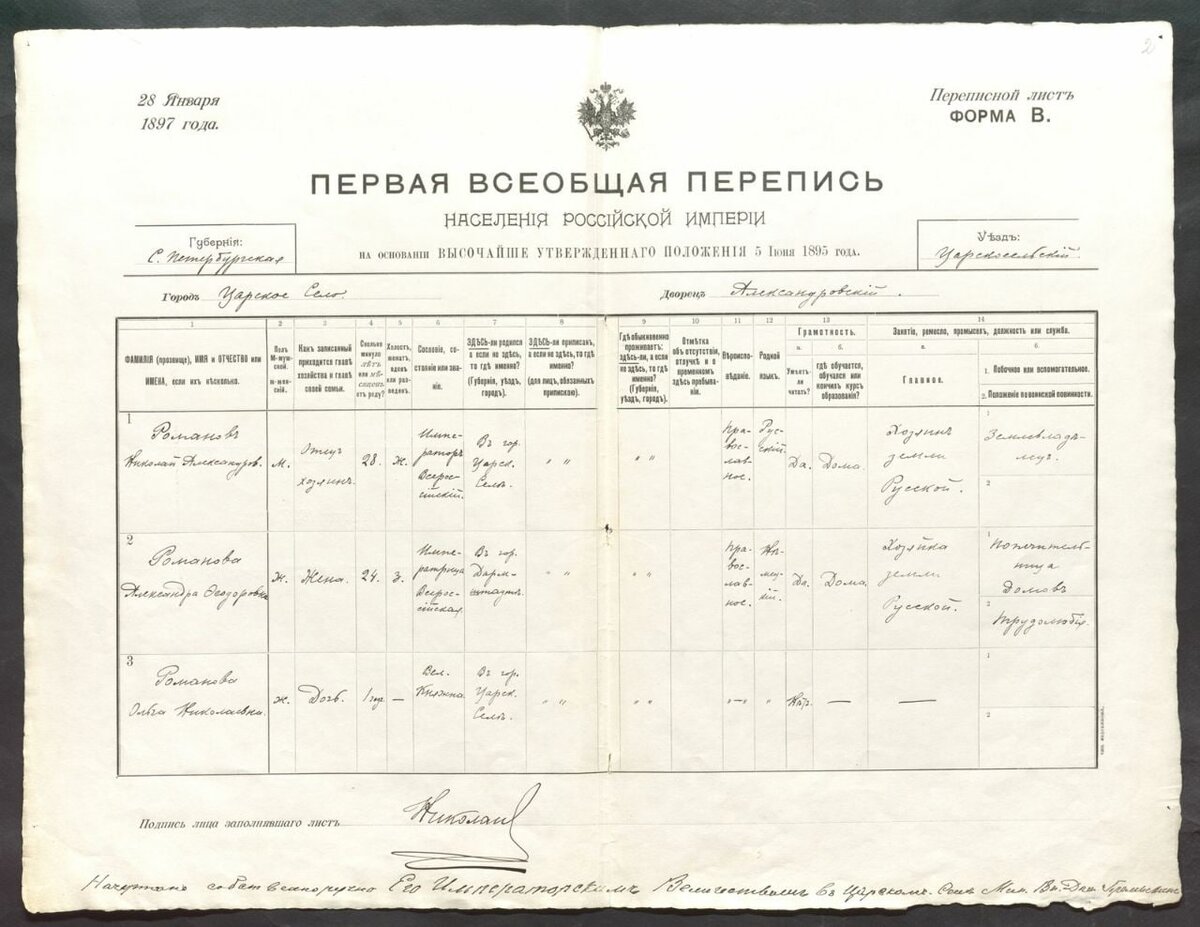 2
28 Января
1897 года.
Переписной листъ
ФОРМА В.
ПЕРВАЯ ВСЕОБЩАЯ ПЕРЕПИСЬ
НАСЕЛЕНІЯ РОССІЙСКОЙ ИМПЕРІИ
НА ОСНОВАНІИ ВЫСОЧАЙШЕ УТВЕРЖДЕННАГО ПОЛОЖЕНІЯ 5 Іюня 1895 года.
Губернія:
С. Петербургская
Уѣздъ:
Царскосельскій
Городъ Царское Село.
Дворецъ Александровскій.
1
2
3
4
5
6
7
8
9
10
11
12
13
14
ФАМИЛІЯ (прозвище), ИМЯ И ОТЧЕСТВО или
ИМЕНА, если ихъ нѣсколько.
Полъ
М-мужской.
Ж-женскій.
Какъ записанный
приходится главѣ
хозяйства и главѣ
своей семьи.
Сколько
минуло
лѣтъ
или мѣсяцевъ
отъ роду?
Холостъ,
женатъ,
вдовъ
или разведенъ.
Сословіе, состояніе или званіе.
ЗДѢСЬ-ли родился
а если не здѣсь,
то гдѣ именно?
(Губернія, уѣздъ,
городъ).
ЗДѢСЬ-ли приписанъ,
а если не здѣсь, то гдѣ
именно?
(для лицъ, обязанныхъ
припискою).
Гдѣ обыкновенно
проживаетъ:
здѣсь-ли, а если
не здѣсь, то гдѣ
именно?
(Губернія,
уѣздъ, городъ).
Отмѣтка
объ отсутствіи,
отлучкѣ и о
временномъ
здѣсь пребываніи.
Вѣроисповѣданіе.
Родной
языкъ.
Грамотность.
а.
Умѣетъ-ли
читать?
б.
гдѣ обучается,
обучался или
кончилъ курсъ
образованія?
Занятіе, ремесло, промыселъ, должность или служба.
а.
Главное.
б.
1. Побочное или вспомогательное.
2. Положеніе по воинской повинности.
1
Романовъ
Николай Александров.
М.
хозяинъ
28
ж.
Императоръ
Всероссійскій.
Въ гор.
Царск.
Селѣ.
" "
" "
Православное.
Русскій.
Да.
Дома.
Хозяинъ
земли
Русской.
1
Землевладѣлецъ.
2
2
Романова
Александра Ѳеодоровна
Ж.
Жена.
24.
з.
Императрица
Всероссійская
Въ гор.
Дармштадтѣ.
" "
" "
Православное.
Нѣмецкій.
Да.
Дома.
Хозяйка
земли
Русской.
1
Попечительница
Домовъ
2
Трудолюбія.
3
Романова
Ольга Николаевна.
ж.
Дочь.
1 год.
—
Вел.
Княжна
Въ гор.
Царск.
Селѣ.
" "
" "
"—"
"
Нѣтъ.
—
—
1
2
Подпись лица заполнявшаго листъ
Николай
Начертано собственноручно Его Императорскимъ Величествомъ въ Царскомъ Селѣ